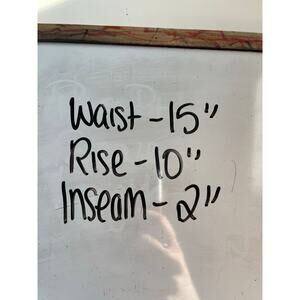 Waist - 15"
Rise - 10"
Inseam - 2"